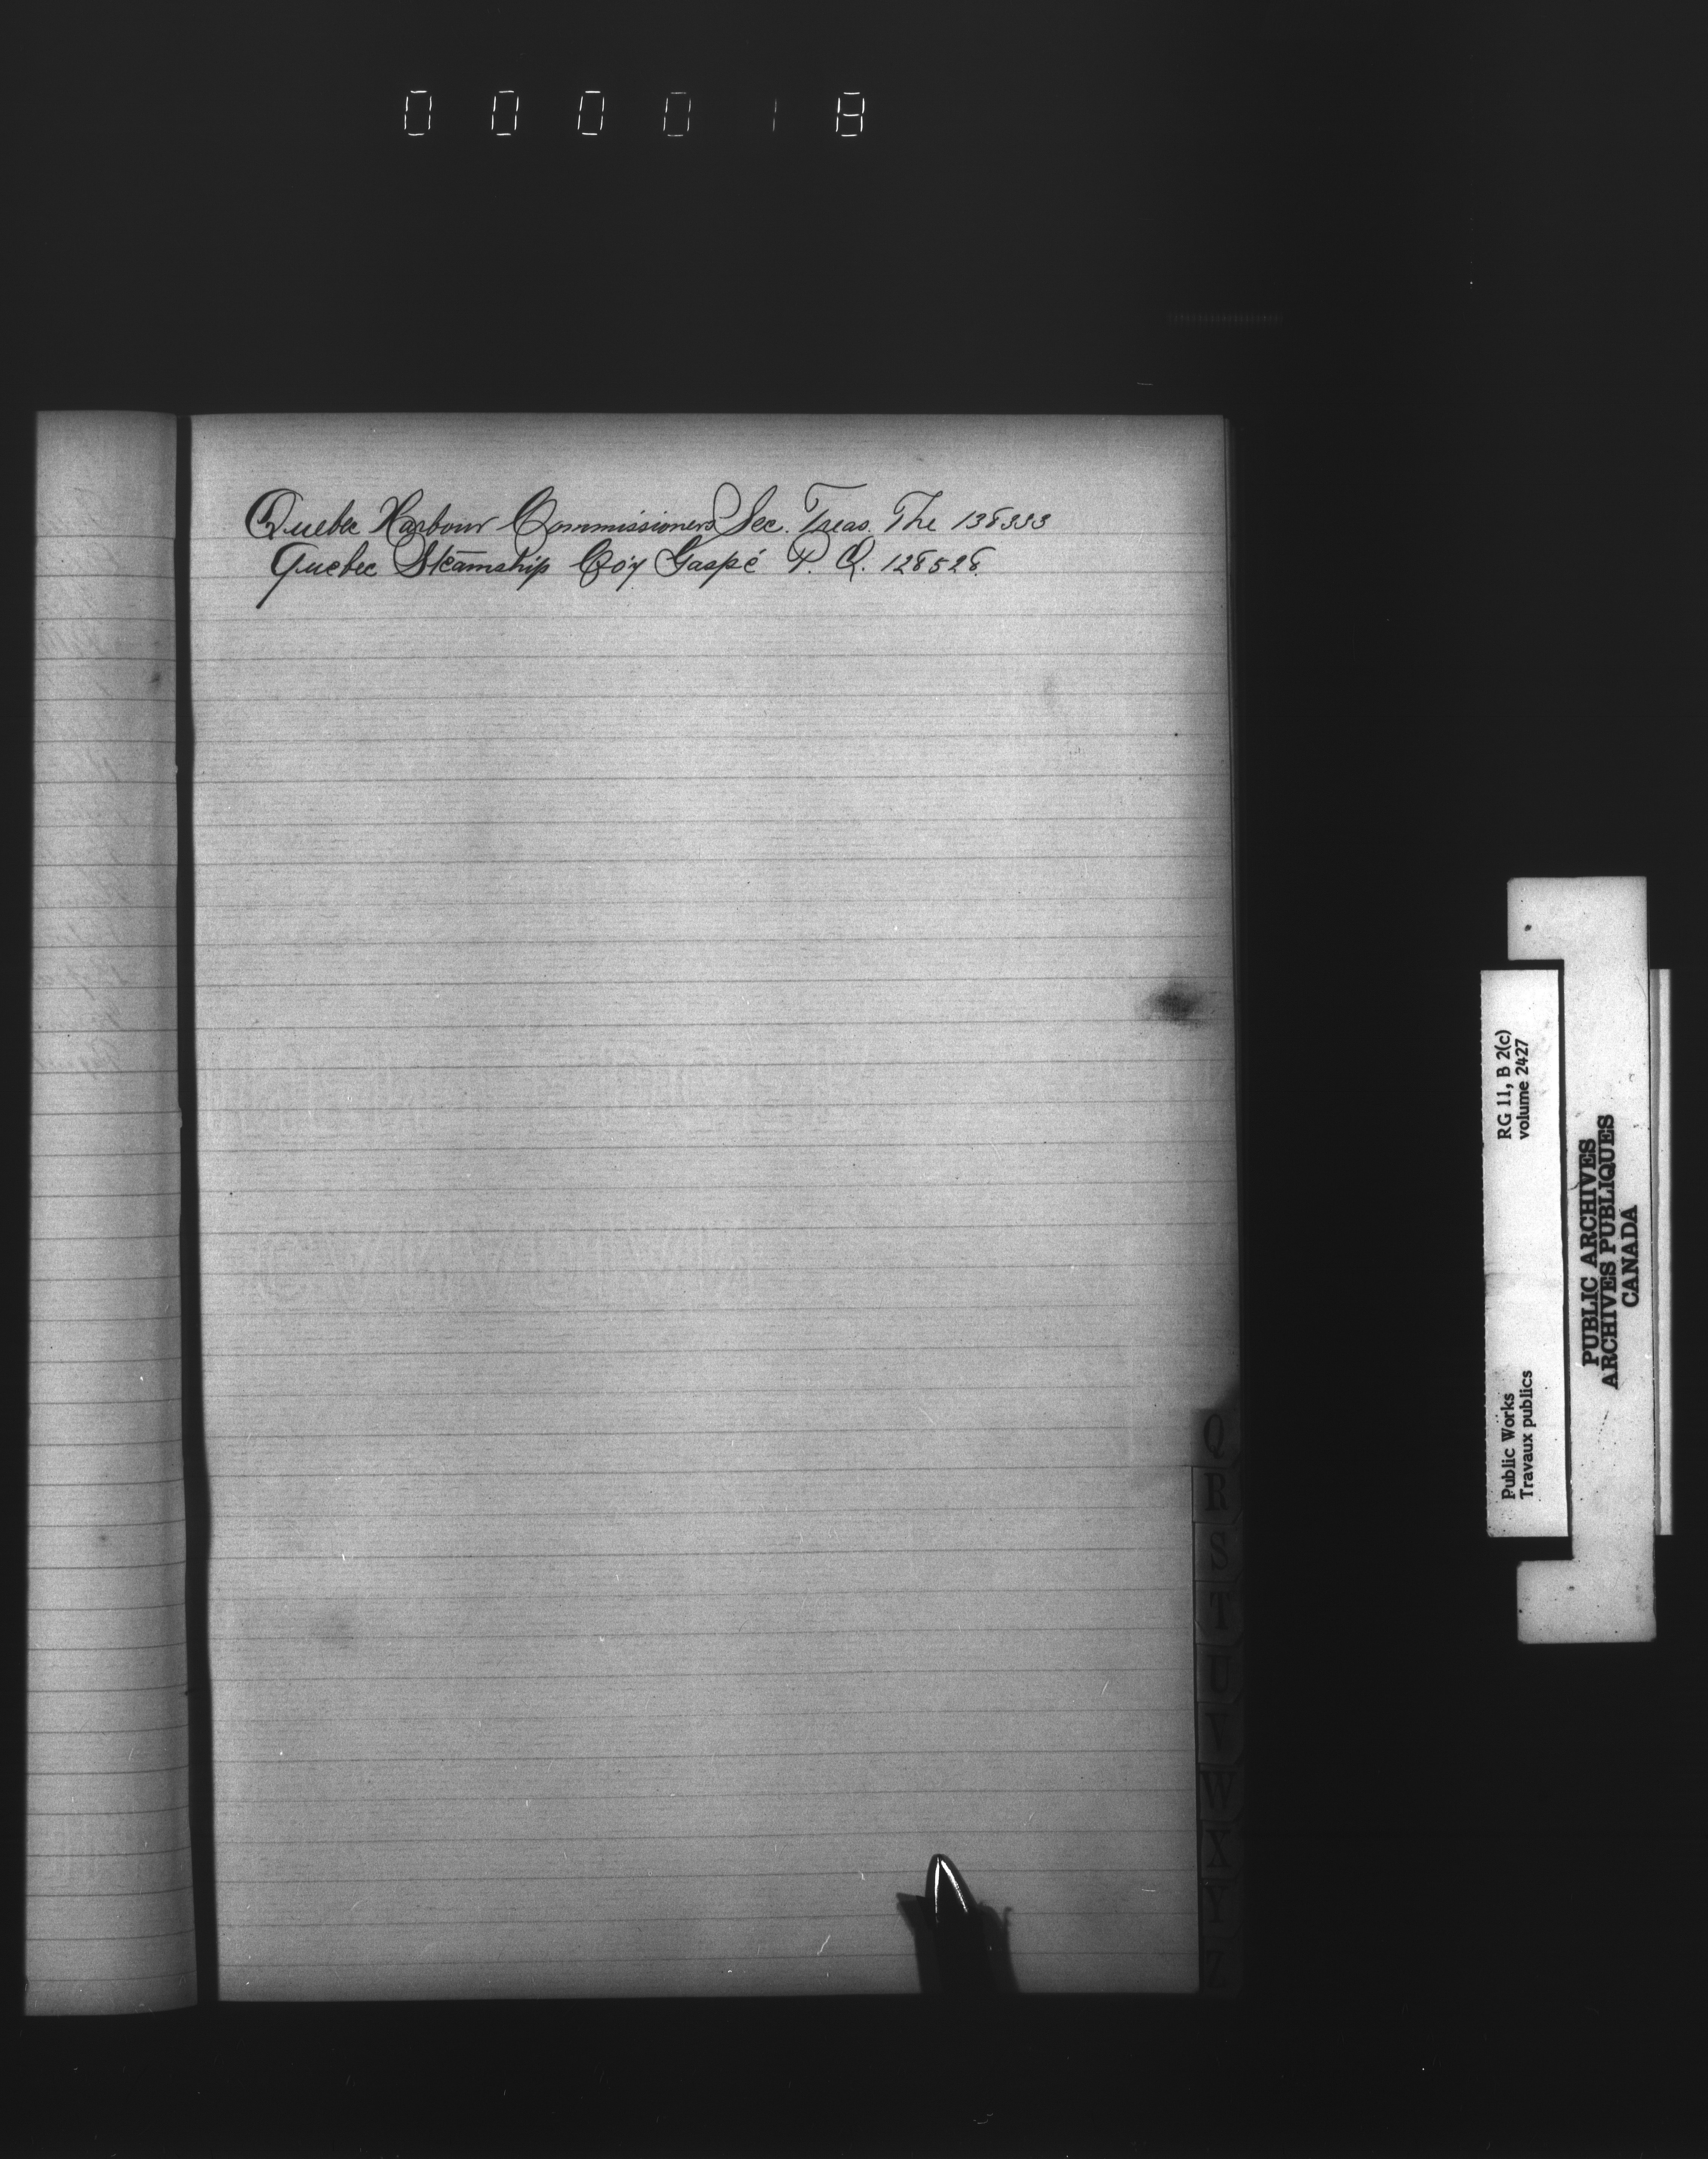 000018
Quebec Harbour Commissioners Sec. Treas. The 138333
Quebec Steamship Co'y Gaspé P. Q. 128528.
Q
R
S
T
U
V
W
X
Y
Z
Public Works
Travaux publics
RG 11, B 2(c)
volume 2427
PUBLIC ARCHIVES
ARCHIVES PUBLIQUES
CANADA